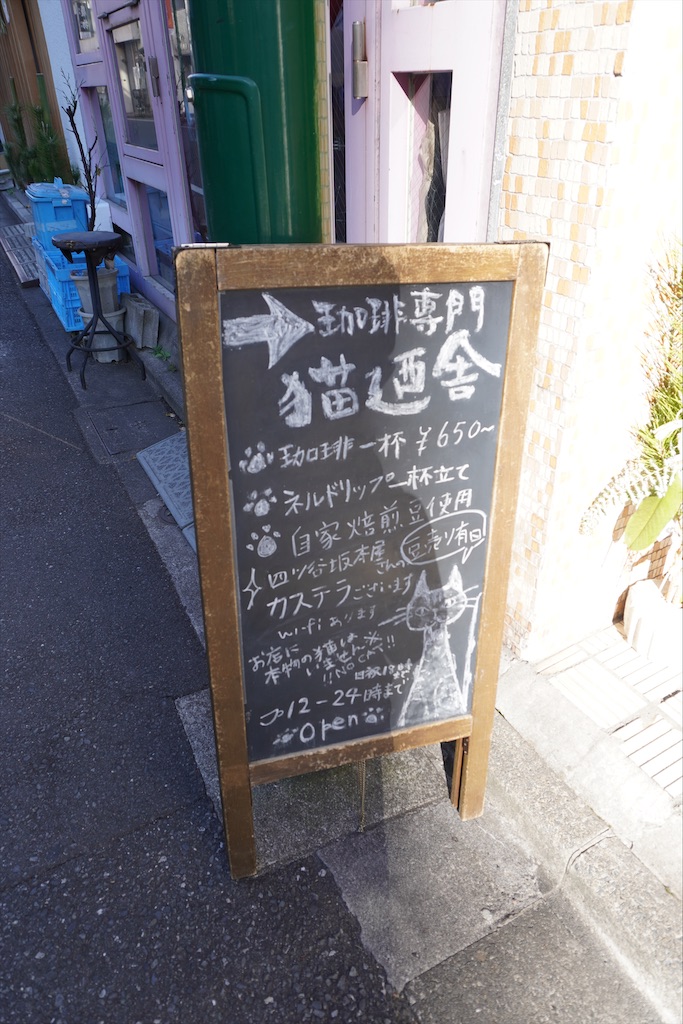 珈琲専門
猫廼舎
珈琲一杯 ¥650~
ネルドリップ一杯立て
自家焙煎豆使用
豆売り有□
四ツ谷坂本屋さんの
カステラございます
wi-fiあります
お店に本物の猫はいません※
!!NO CAT!!
日祝18時まで
12-24時まで
Open